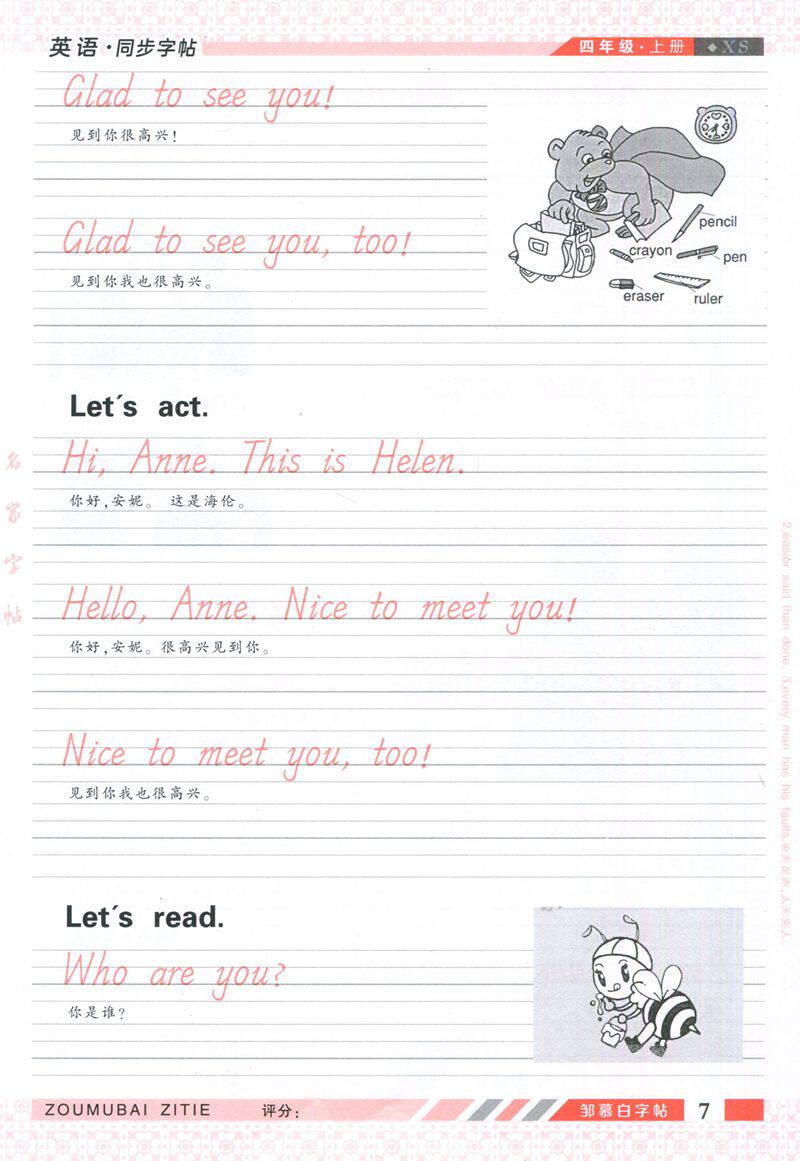 英语·同步字帖
四年级·上册
XS
Glad to see you!
见到你很高兴!
pencil
crayon
pen
eraser
ruler
Glad to see you, too!
见到你我也很高兴。
Let's act.
Hi, Anne. This is Helen.
你好,安妮。 这是海伦。
Hello, Anne. Nice to meet you!
你好,安妮。很高兴见到你。
Nice to meet you, too!
见到你我也很高兴。
Let's read.
Who are you?
你是谁?
名家字帖
2.easier said than done 3.every man has his faults.金无足赤,人无完人。
ZOUMUBAI ZITIE
评分:
邹慕白字帖
7